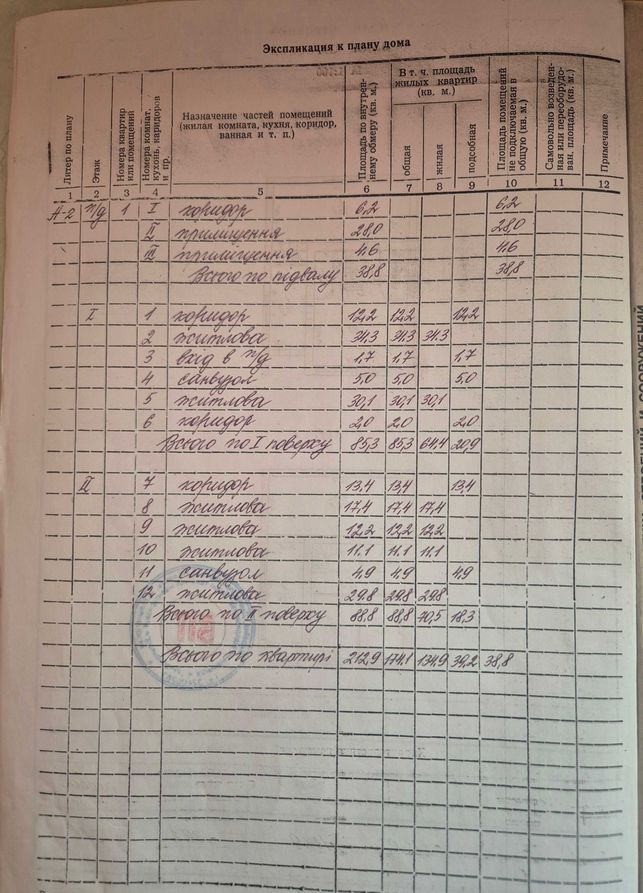 Экспликация к плану дома
Литер по плану
Этаж
Номера квартир или помещений
Номера комнат, кухонь, каридоров и пр.
Назначение частей помещений (жилая комната, кухня, коридор, ванная и т. п.)
Площадь по внутреннему обмеру (кв. м.)
В т. ч. площадь жилых квартир (кв. м.)
общая
жилая
подсобная
Площадь помещений не подключаемая в общую (кв. м.)
Самовольно возведенная или переоборудован. площадь (кв. м.)
Примечание
1 2 3 4 5 6 7 8 9 10 11 12
А-2 п/д 1 I коридор 6,2 6,2
II приміщення 28,0 28,0
III приміщення 4,6 4,6
Всього по підвалу 38,8 38,8
I 1 коридор 12,2 12,2 12,2
2 житлова 34,3 34.3 34.3
3 вхід в п/д 1,7 1,7 1,7
4 санвузол 5,0 5,0 5,0
5 житлова 30,1 30,1 30,1
6 коридор 2,0 2,0 2,0
Всього по I поверху 85,3 85,3 64,4 20,9
II 7 коридор 13,4 13,4 13,4
8 житлова 17,4 17,4 17,4
9 житлова 12,2 12,2 12,2
10 житлова 11.1 11.1 11.1
11 санвузол 4,9 4,9 4,9
12 житлова 29,8 29,8 29,8
Всього по II поверху 88,8 88,8 70,5 18,3
Всього по квартирі 212,9 174,1 134,9 39,2 38,8